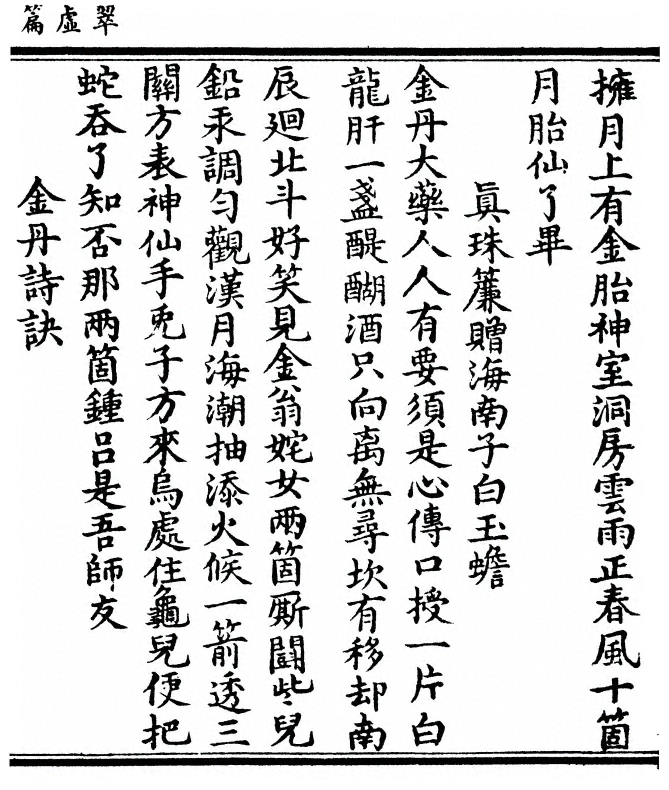 翠虛篇
擁月上有金胎神室洞房雲雨正春風十箇
月胎仙了畢
眞珠簾贈海南子白玉蟾
金丹大藥人人有要須是心傳口授一片白
龍肝一盞醍醐酒只向离無尋坎有移却南
辰廻北斗好笑見金翁姹女兩箇厮鬪些兒
鉛汞調勻觀漢月海潮抽添火候一箭透三
關方表神仙手兎子方來烏處住龜兒便把
蛇吞了知否那兩箇鍾呂是吾師友
金丹詩訣